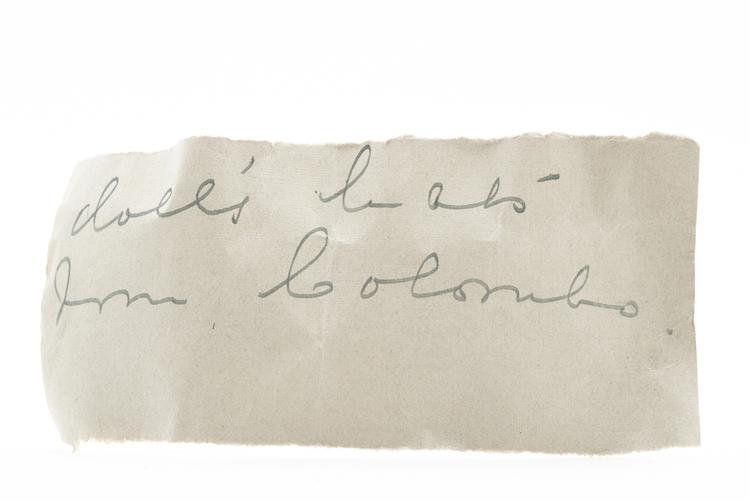 doll's hats
from Colombo.